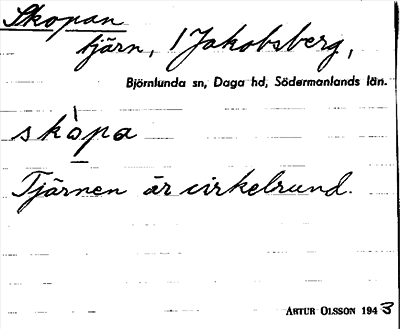 Skopan
tjärn, / Jakobsberg,
Björnlunda sn, Daga hd, Södermanlands län.
skò̱pa
Tjärnen är cirkelrund.
ARTUR OLSSON 1943